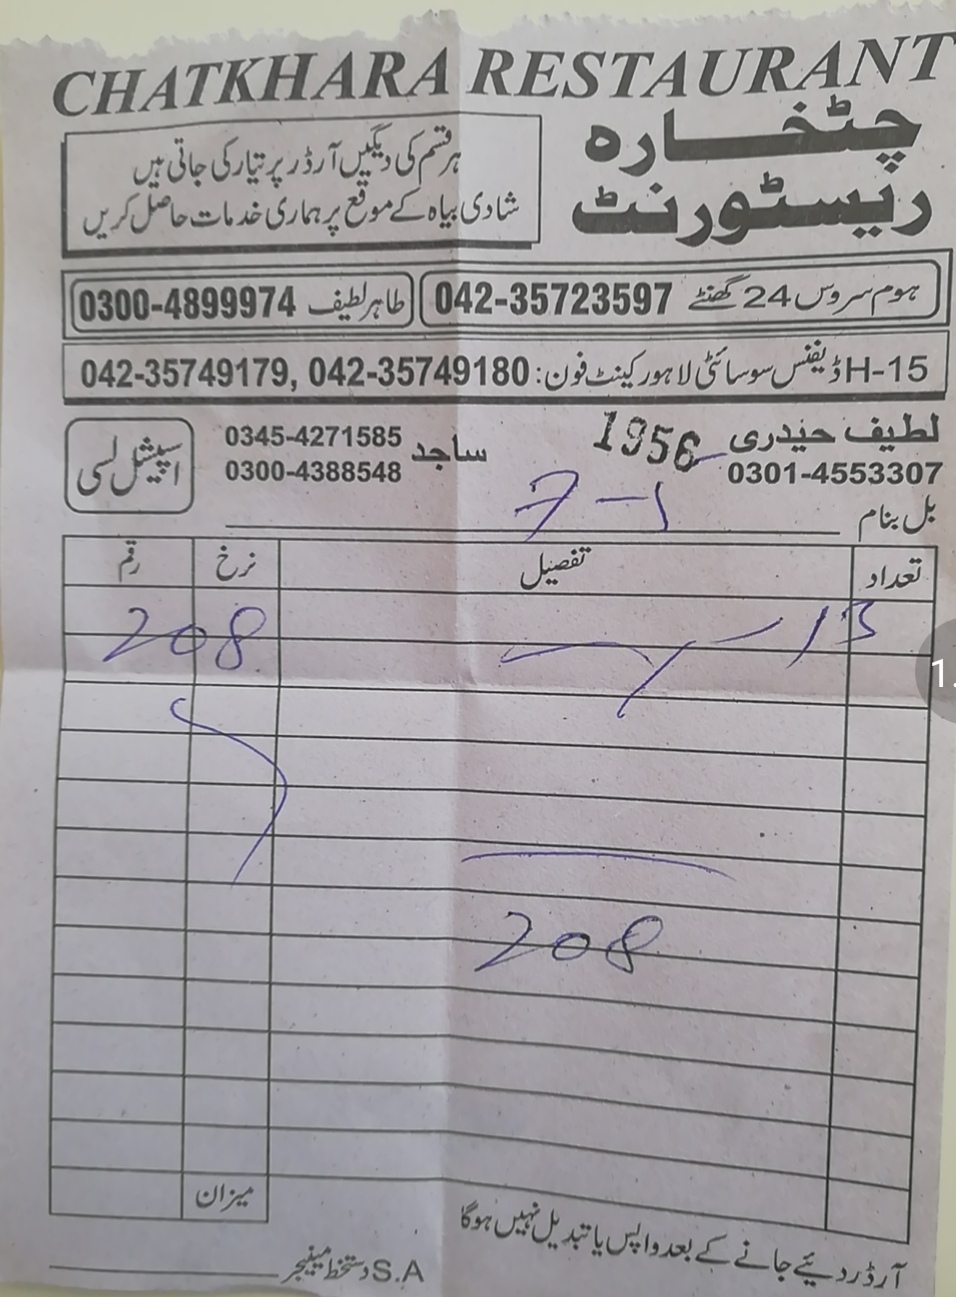 CHATKHARA RESTAURANT
چٹخارہ
ریسٹورنٹ
ہر قسم کی دیگیں آرڈر پر تیار کی جاتی ہیں
شادی بیاہ کے موقع پر ہماری خدمات حاصل کریں
ہوم سروس 24 گھنٹے 042-35723597
طاہر لطیف 0300-4899974
15-H ڈیفنس سوسائٹی لاہور کینٹ فون: 042-35749180, 042-35749179
لطیف حیدری
0301-4553307
1956
ساجد
0345-4271585
0300-4388548
اسپیشل لسی
بل بنام
7-1
تعداد تفصیل نرخ رقم
13
208
208
میزان
آرڈر دئیے جانے کے بعد واپس یا تبدیل نہیں ہوگا
S.A دستخط مینیجر
1.